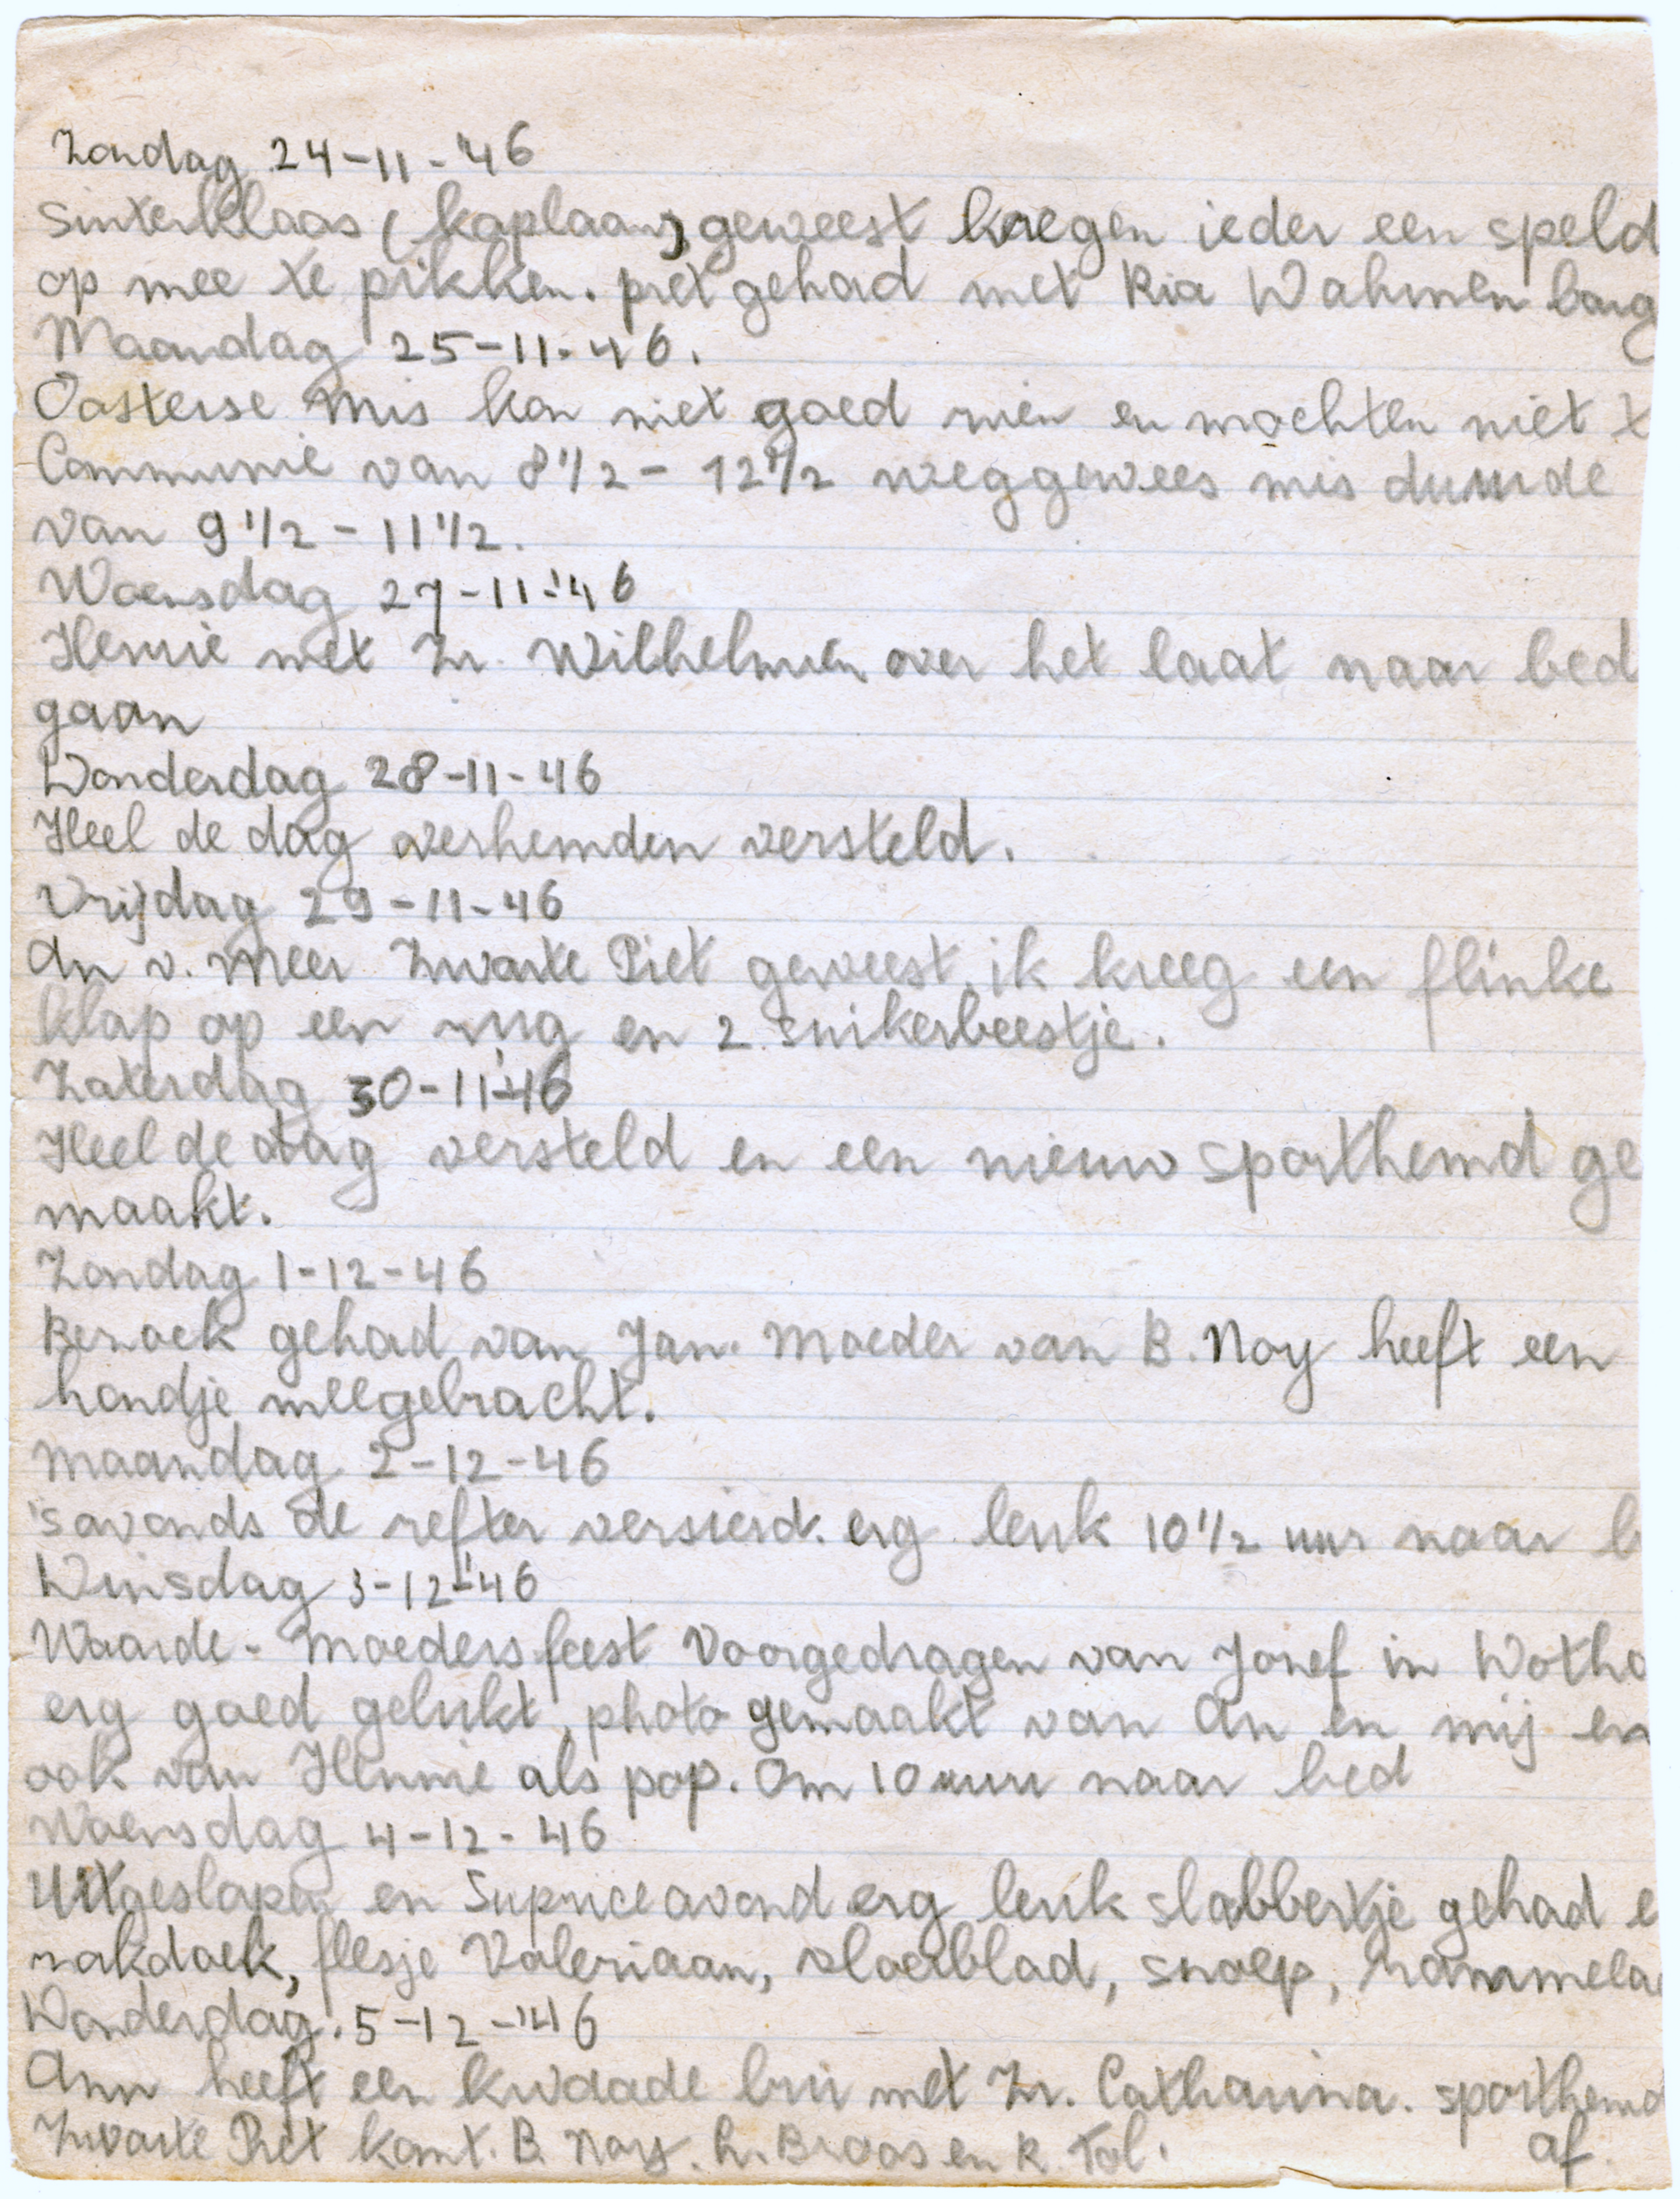 Zondag 24-11-'46
Sinterklaas (kaplaan) geweest kregen ieder een speld
op mee te prikken. pret gehad met Ria Wahmenbarg
Maandag 25-11-46.
Oosterse Mis kon niet goed zien en mochten niet t
Communie van 8 1/2 - 12 1/2 weggewees mis duurde
van 9 1/2 - 11 1/2.
Woensdag 27-11-'46
Hennie met Zr. Wilhelmien over het laat naar bed
gaan
Donderdag 28-11-46
Heel de dag overhemden versteld.
Vrijdag 29-11-46
An v. Meer Zwarte Piet geweest, ik kreeg een flinke
klap op een rug en 2 suikerbeestje.
Zaterdag 30-11-'46
Heel de dag versteld en een nieuw sporthemd ge
maakt.
Zondag 1-12-46
Bezoek gehad van Jan. Moeder van B. Noy heeft een
hondje meegebracht.
Maandag 2-12-46
's avonds de refter versierd. erg leuk 10 1/2 uur naar b
Dinsdag 3-12-'46
Waarde-Moedersfeest Voorgedragen van Josef in Dotha
erg goed gelukt, photo gemaakt van An en mij en
ook van Hennie als pop. Om 10 uur naar bed
Woensdag 4-12-46
Uitgeslapen en Supriceavond erg leuk slabbertje gehad e
zakdoek, flesje Valeriaan, vloeiblad, snoep, rammela
Donderdag. 5-12-'46
Ann heeft een kwaade bui met Zr. Catharina. sporthemd
Zwarte Piet komt. B. Noy. L. Broos en R. Tol. af.